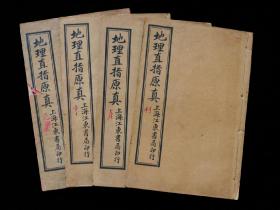 地理直指原真
上海江東書局印行
地理直指原真
上海江東書局印行
地理直指原真
上海江東書局印行
地理直指原真
上海江東書局印行